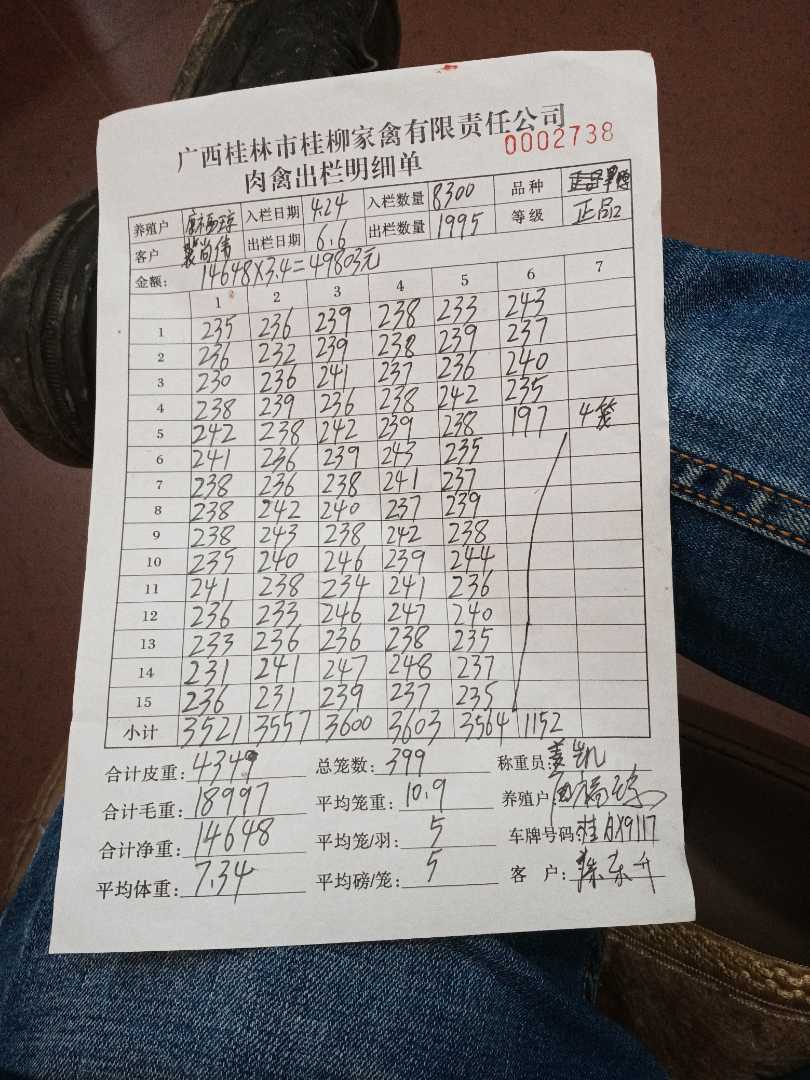 广西桂林市桂柳家禽有限责任公司
肉禽出栏明细单 0002738
养殖户 入栏日期 4.24 入栏数量 8300 品种
客户 出栏日期 6.6 出栏数量 1995 等级 正品
金额: 14648×3.4=49803元
1 2 3 4 5 6 7
1 235 236 239 238 233 243
2 236 232 239 238 239 237
3 230 236 241 237 236 240
4 238 239 236 238 242 235
5 242 238 242 239 238 197 4笼
6 241 236 239 243 235
7 238 236 238 241 237
8 238 242 240 237 239
9 238 243 238 242 238
10 235 240 246 239 244
11 241 238 234 241 236
12 236 233 246 247 240
13 233 236 236 238 235
14 231 241 247 248 237
15 236 231 239 237 235
小计 3521 3557 3600 3603 3564 1152
合计皮重: 4349 总笼数: 399 称重员: 姜凯
合计毛重: 18997 平均笼重: 10.9 养殖户:
合计净重: 14648 平均笼/羽: 5 车牌号码: 桂
平均体重: 7.34 平均磅/笼: 5 客 户: 陈东升